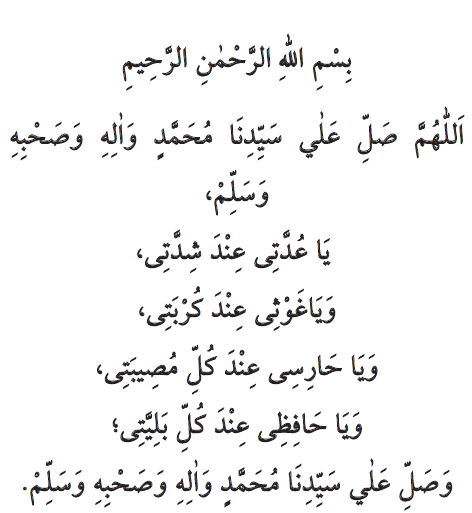 بِسْمِ اللّٰهِ الرَّحْمٰنِ الرَّحِيمِ
اَللّٰهُمَّ صَلِّ عَلٰي سَيِّدِنَا مُحَمَّدٍ وَاٰلِهِ وَصَحْبِهِ
وَسَلِّمْ،
يَا عُدَّتِى عِنْدَ شِدَّتِى،
وَيَاغَوْثِى عِنْدَ كُرْبَتِى،
وَيَا حَارِسِى عِنْدَ كُلِّ مُصِيبَتِى،
وَيَا حَافِظِى عِنْدَ كُلِّ بَلِيَّتِى؛
وَصَلِّ عَلٰي سَيِّدِنَا مُحَمَّدٍ وَاٰلِهِ وَصَحْبِهِ وَسَلِّمْ.